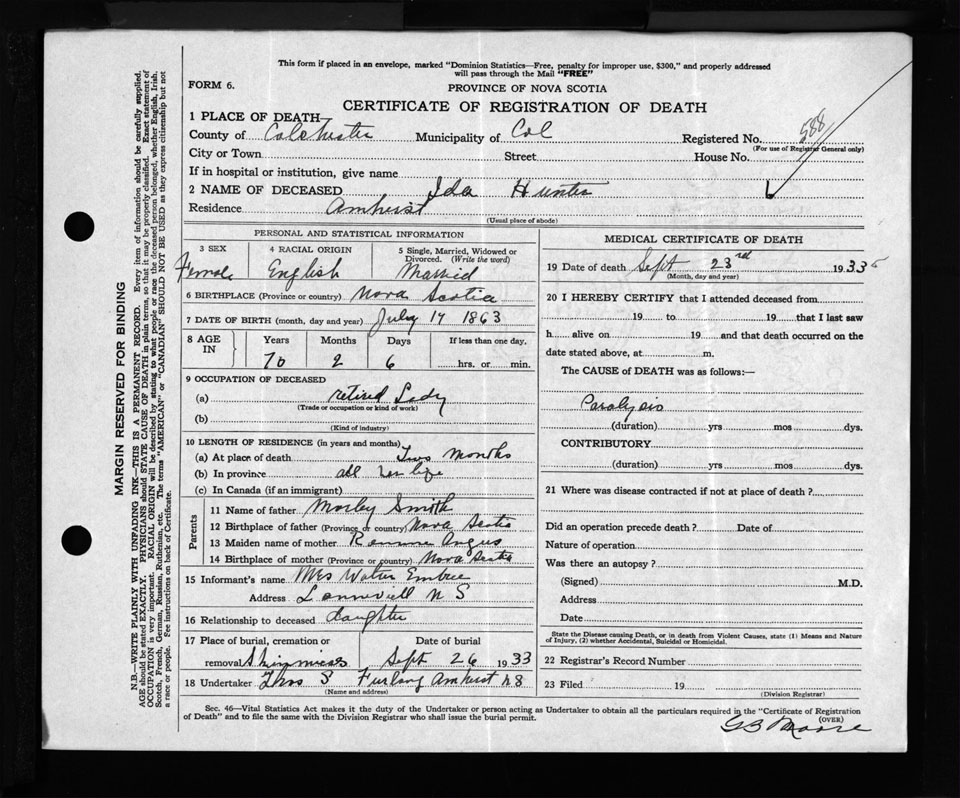 This form if placed in an envelope, marked "Dominion Statistics—Free, penalty for improper use, $300," and properly addressed
will pass through the Mail "FREE"
FORM 6.
PROVINCE OF NOVA SCOTIA
CERTIFICATE OF REGISTRATION OF DEATH
1 PLACE OF DEATH—
County of Colchester Municipality of Col Registered No. 588
(For use of Registrar General only)
City or Town Street House No.
If in hospital or institution, give name
2 NAME OF DECEASED Ida Hunter
Residence Amherst
(Usual place of abode)
PERSONAL AND STATISTICAL INFORMATION
3 SEX 4 RACIAL ORIGIN 5 Single, Married, Widowed or
Divorced. (Write the word)
Female English Married
6 BIRTHPLACE (Province or country) Nova Scotia
7 DATE OF BIRTH (month, day and year) July 17 1863
8 AGE IN Years Months Days If less than one day.
70 2 6 hrs. or min.
9 OCCUPATION OF DECEASED
(a) retired Lady
(Trade or occupation or kind of work)
(b)
(Kind of industry)
10 LENGTH OF RESIDENCE (in years and months)
(a) At place of death Two months
(b) In province all her life
(c) In Canada (if an immigrant)
Parents
11 Name of father Morley Smith
12 Birthplace of father (Province or country) Nova Scotia
13 Maiden name of mother Angus
14 Birthplace of mother (Province or country) Nova Scotia
15 Informant's name Mrs Walter Embree
Address N S
16 Relationship to deceased daughter
17 Place of burial, cremation or Date of burial
removal Sept 26 1933
18 Undertaker Thos S Furlong Amherst NS
(Name and address)
MEDICAL CERTIFICATE OF DEATH
19 Date of death Sept 23rd 1933
(Month, day and year)
20 I HEREBY CERTIFY that I attended deceased from
19 to 19 that I last saw
h alive on 19 and that death occurred on the
date stated above, at m.
The CAUSE of DEATH was as follows:—
Paralysis
(duration) yrs mos dys.
CONTRIBUTORY
(duration) yrs mos dys.
21 Where was disease contracted if not at place of death?
Did an operation precede death? Date of
Nature of operation
Was there an autopsy?
(Signed) M.D.
Address
Date
State the Disease causing Death, or in death from Violent Causes, state (1) Means and Nature
of Injury, (2) whether Accidental, Suicidal or Homicidal.
22 Registrar's Record Number
23 Filed 19
(Division Registrar)
Sec. 46—Vital Statistics Act makes it the duty of the Undertaker or person acting as Undertaker to obtain all the particulars required in the "Certificate of Registration
of Death" and to file the same with the Division Registrar who shall issue the burial permit.
(OVER)
G B Moore
MARGIN RESERVED FOR BINDING
N.B.—WRITE PLAINLY WITH UNFADING INK—THIS IS A PERMANENT RECORD. Every item of information should be carefully supplied.
AGE should be stated EXACTLY. PHYSICIANS should STATE CAUSE OF DEATH in plain terms, so that it may be properly classified. Exact statement of
OCCUPATION is very important. RACIAL ORIGIN will be described by stating to what people or race the deceased person belonged, whether English, Irish,
Scotch, French, German, Russian, Ruthenian, etc. The terms "AMERICAN" or "CANADIAN" SHOULD NOT BE USED as they express citizenship but not
a race or people. See instructions on back of Certificate.